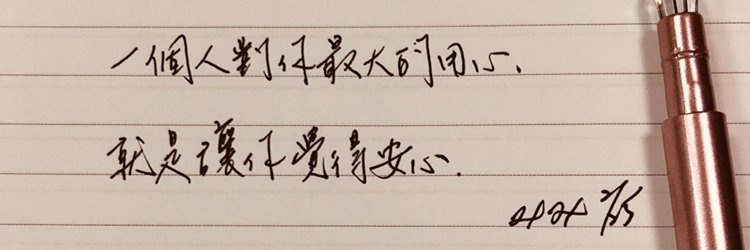 一個人對你最大的用心,
就是讓你覺得安心.